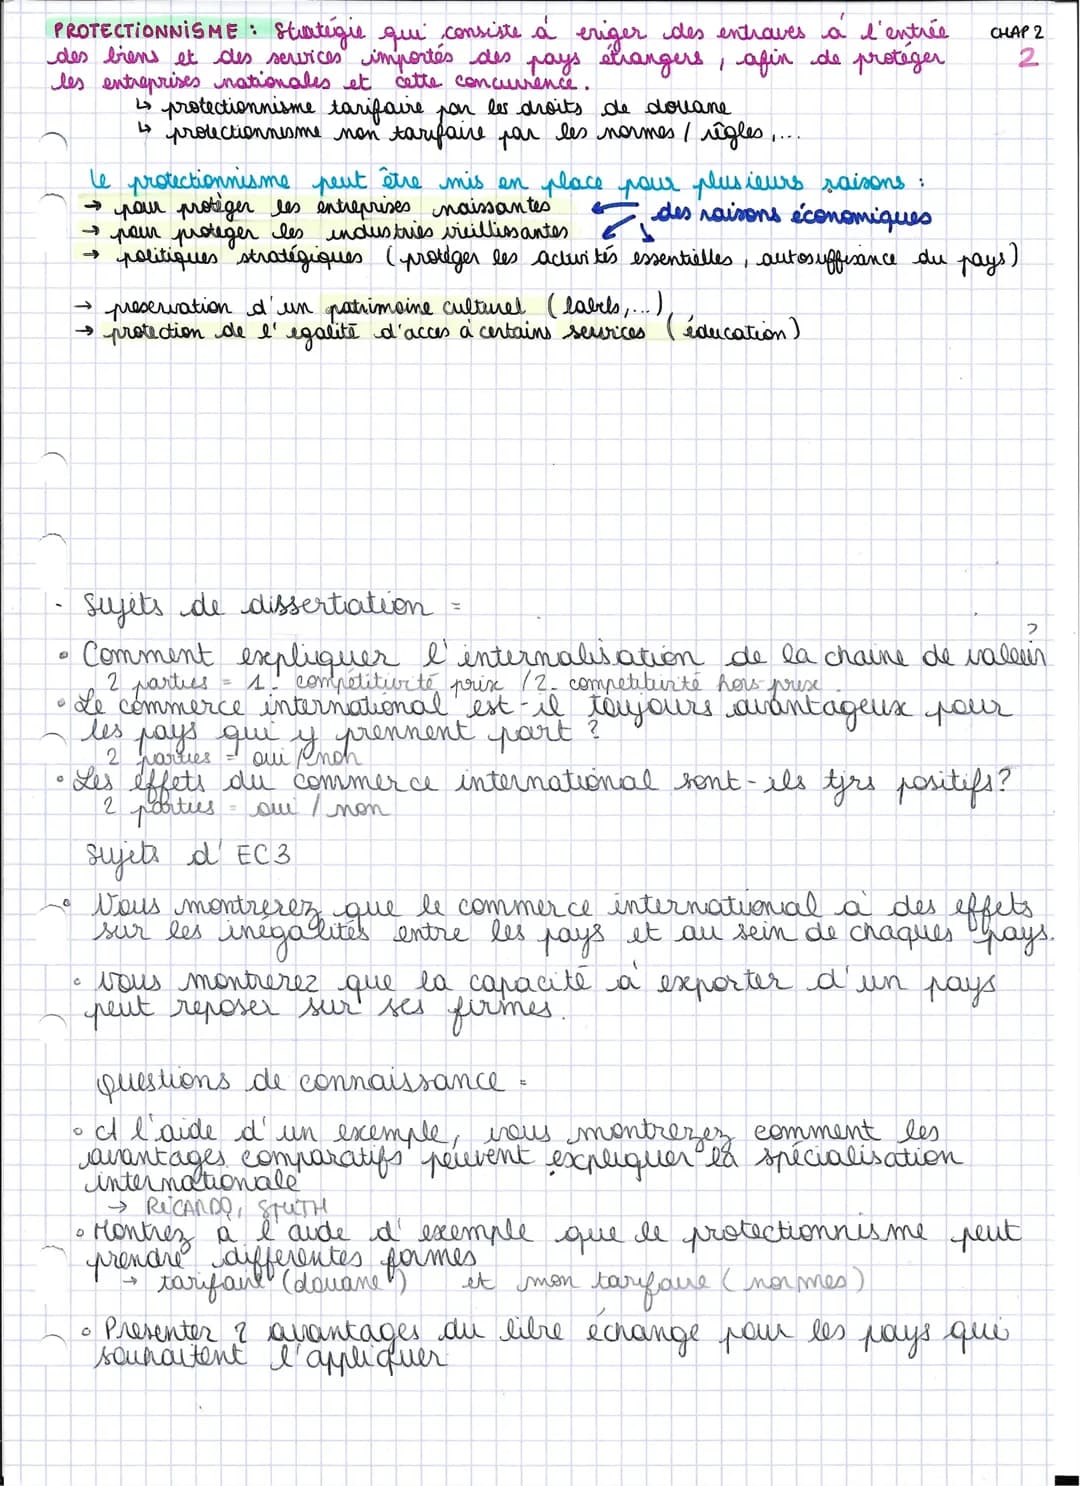 PROTECTIONNISME : Stratégie qui consiste à eriger des entraves à l'entrée
CHAP 2
des biens et des services importés des pays étrangers, afin de protéger
2
les entreprises nationales et cette concurrence.
↳ protectionnisme tarifaire par les droits de douane
↳ protectionnisme non tarifaire par les normes / règles,...
le protectionnisme peut être mis en place pour plusieurs raisons :
→ pour protéger les entreprises naissantes
des raisons économiques
→ pour protéger les industries vieillissantes
→ politiques stratégiques (protéger les activités essentielles, autosuffisance du pays)
→ preservation d'un patrimoine culturel (labels,...)
→ protection de l'egalité d'acces à certains services (éducation)
- Sujets de dissertation =
• Comment expliquer l'internalisation de la chaine de valeur ?
2 parties = 1- compétitivité prix / 2- competitivité hors-prix
• Le commerce international est-il toujours avantageux pour
les pays qui y prennent part ?
2 parties = oui / non
• Les effets du commerce international sont-ils tjrs positifs?
2 parties = oui / non
sujets d'EC3
• Vous montrerez que le commerce international à des effets
sur les inégalités entre les pays et au sein de chaques pays.
• Vous montrerez que la capacité à exporter d'un pays
peut reposer sur ses firmes.
questions de connaissance =
• A l'aide d'un exemple, vous montrerez comment les
avantages comparatifs peuvent expliquer la spécialisation
internationale
→ RICARDO, SMITH
• Montrez à l'aide d'exemple que le protectionnisme peut
prendre differentes formes
→ tarifaire (douane) et non tarifaire (normes)
• Presenter 2 avantages du libre échange pour les pays qui
souhaitent l'appliquer